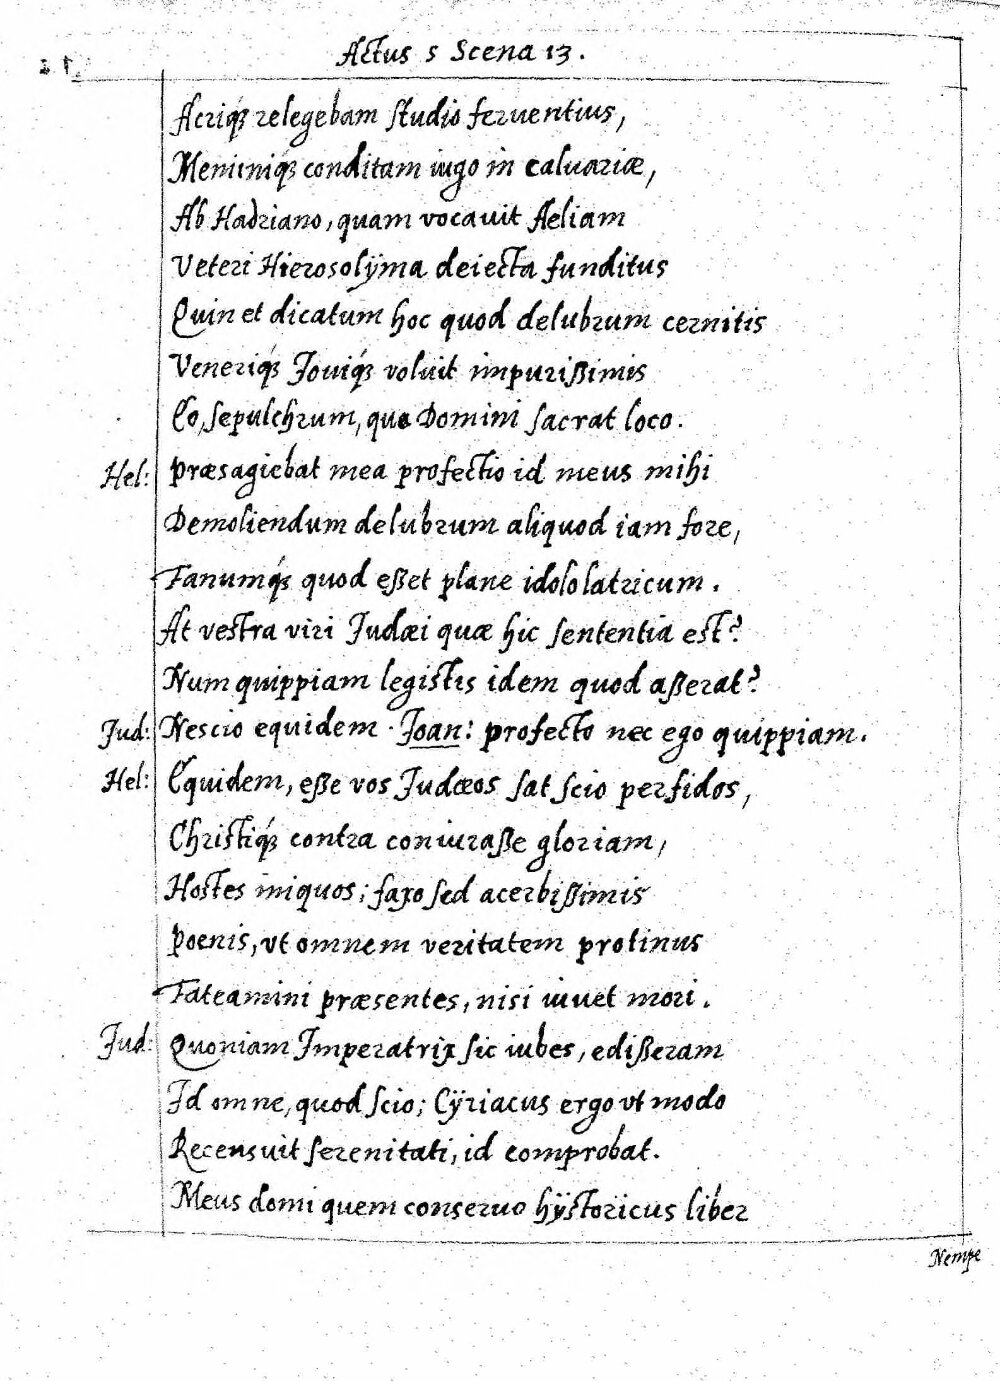 Actus 5 Scena 13.
Acriq́ relegebam studio feruentius,
Meminiq́ conditam iugo in Caluariæ,
Ab Hadriano, quam vocauit Aeliam
Veteri Hierosolÿma deiecta funditus
Quin et dicatum hoc quod delubrum cernitis
Veneriq́ Jouiq́ voluit impurißimis
Eo, sepulchrum, quo Domini sacrat loco.
Hel: præsagiebat mea profectio id meus mihi
Demoliendum delubrum aliquod iam fore,
Fanumq́ quod eßet plane idololatricum.
At vestra viri Judæi quæ hic sententia est?
Num quippiam legistis idem quod aßerat?
Jud: Nescio equidem. Joan: profecto nec ego quippiam.
Hel: Equidem, eße vos Judæos sat scio perfidos,
Christiq́ contra coniuraße gloriam,
Hostes iniquos; faxo sed acerbißimis
Poenis, vt omnem veritatem protinus
Fateamini præsentes, nisi iuuet mori.
Jud: Quoniam Imperatrix sic iubes, edißeram
Id omne, quod scio; Cÿriacus ergo vt modo
Recensuit serenitati, id comprobat.
Meus domi quem conseruo hÿstoricus liber
Nempe